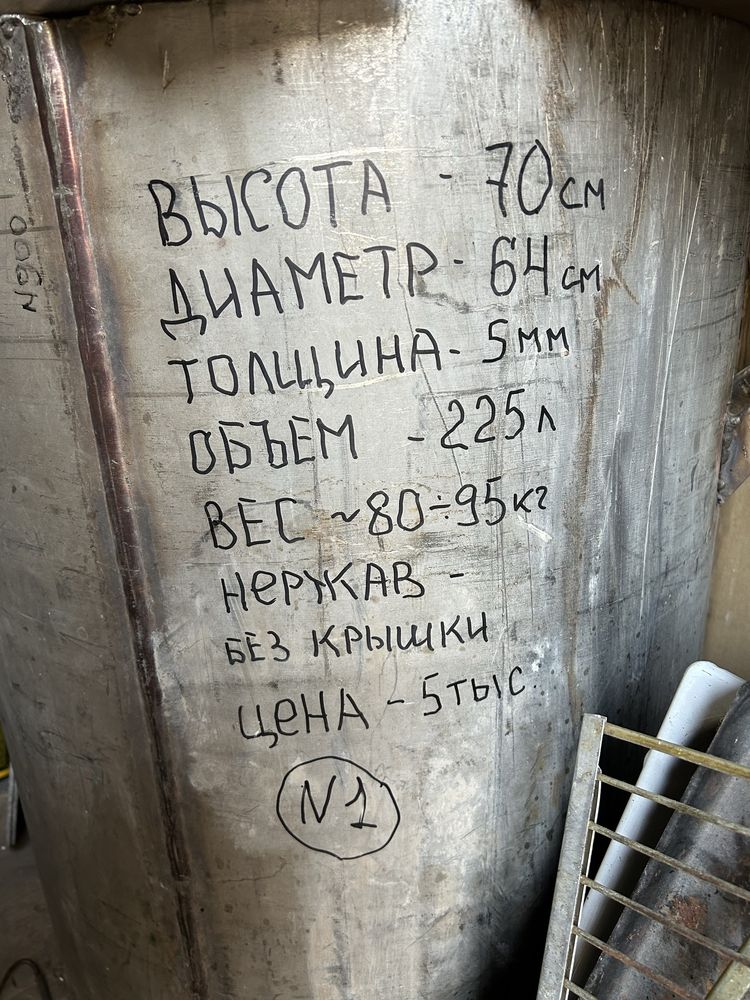 ВЫСОТА - 70 см
ДИАМЕТР - 64 см
ТОЛЩИНА - 5 мм
ОБЪЕМ - 225 л
ВЕС ~ 80÷95 кг
НЕРЖАВ -
БЕЗ КРЫШКИ
ЦЕНА - 5 ТЫС.
N1